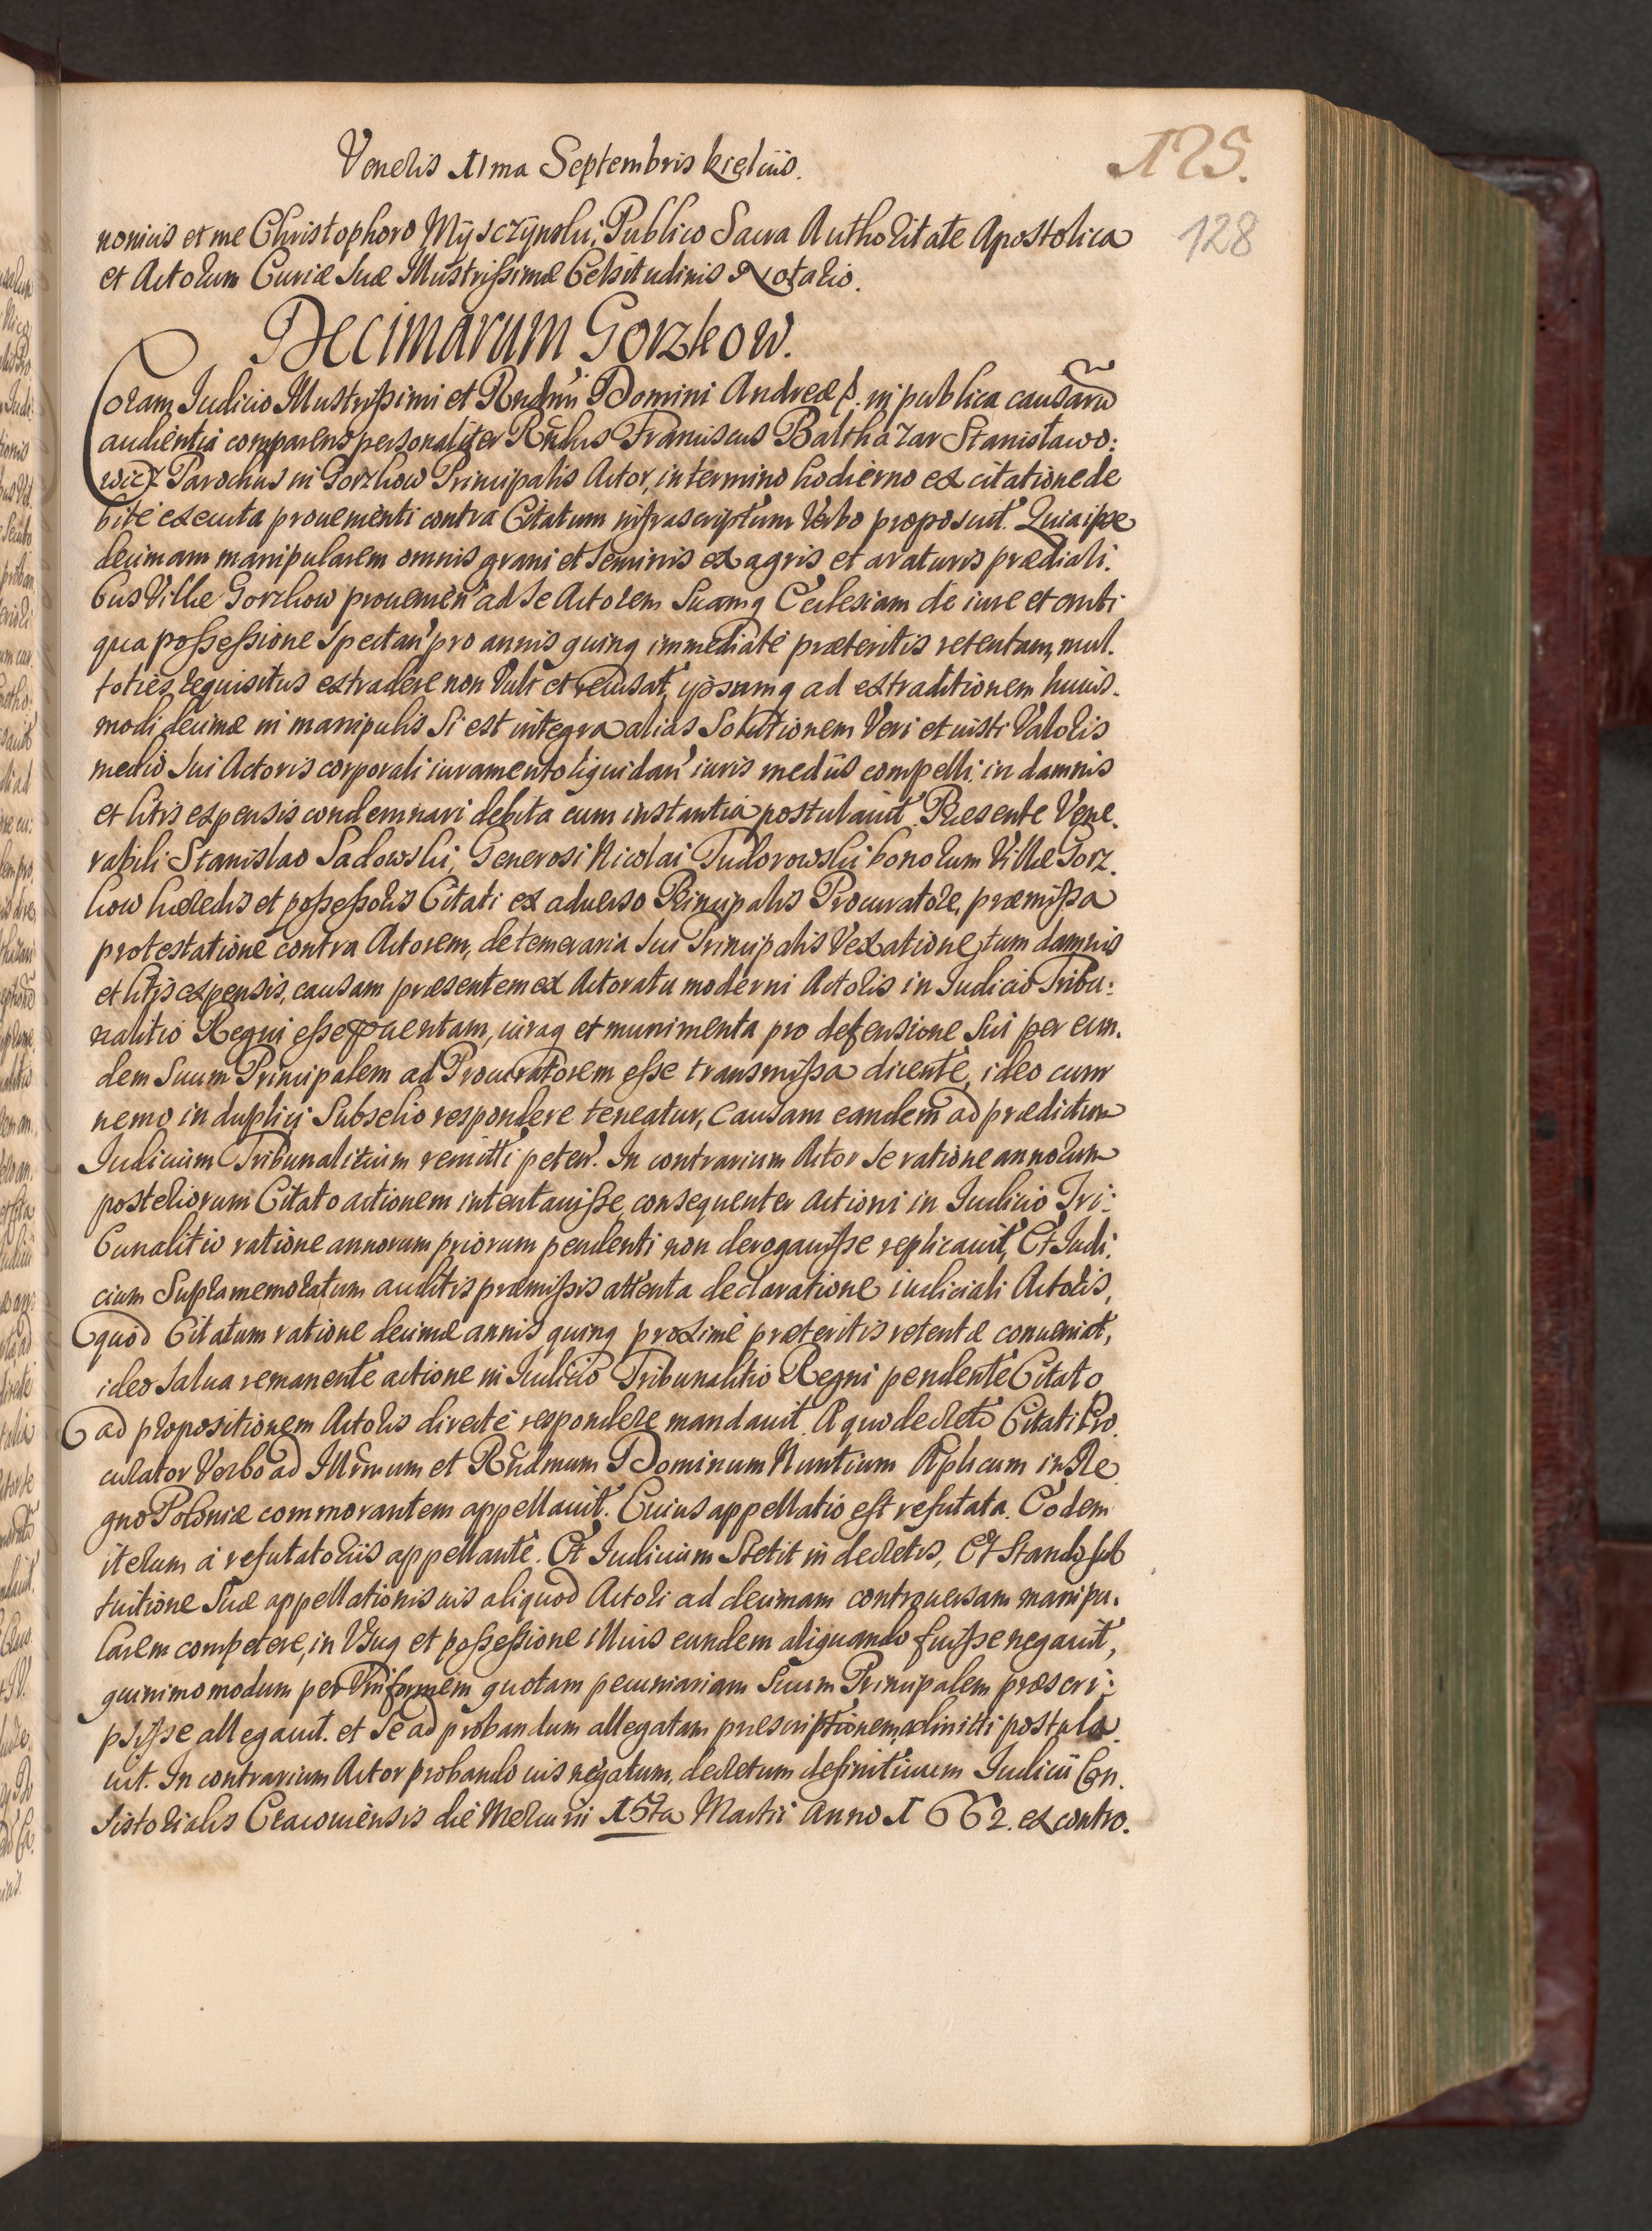 Veneris 11ma Septembris Kielciis.
125.
128
nonicis et me Christophoro Myszczynski, Publico Sacra Authoritate Apostolica
et Actorum Curiæ Suæ Illustrissimæ Celsitudinis Notario.
Decimarum Gorzkow.
Coram Iudicio Illustrissimi et Rndmi Domini Andreæ etc. in publica causarū
audientia comparens personaliter Rndus Franciscus Balthazar Stanisławo:
wicz Parochus in Gorzkow Principalis Actor, in termino hodierno ex citatione de
bite executa provenienti contra Citatum infrascriptum Verbo proposuit. Quia ipse
decimam manipularem omnis grani et seminis ex agris et araturis prædiali.
bus Villæ Gorzkow provenien' ad se Actorem Suamq Ecclesiam de iure et anti
qua possessione Spectan' pro annis quinq immediate præteritis retentam, mul.
toties requisitus extradere non Vult et recusat, ipsumq ad extraditionem huius.
modi decimæ in manipulis si est integra alias Solutionem Veri et iusti Valoris
medio Sui Actoris corporali iuramento liquidan' iuris mediis compelli in damnis
et litis expensis condemnari debita cum instantia postulauit. Præsente Vene.
rabili Stanislao Sadowski, Generosi Nicolai Tudorowski bonorum Villæ Gorz.
kow hæredis et possessoris Citati ex aduerso Principalis Procuratore, præmissa
protestatione contra Actorem, de temeraria Sui Principalis Vexatione tum damnis
et litis expensis, causam præsentem ex Actoratu moderni Actoris in Iudicio Tribu:
nalitio Regni esse frequentam, iuraq et munimenta pro defensione Sui per eun.
dem Suum Principalem ad Procuratorem esse transmissa dicente, ideo cum
nemo in duplici Subselio respondere teneatur, Causam eandem ad prædictum
Iudicium Tribunalitium remitti peten'. In contrarium Actor se ratione annorum
posteriorum Citato actionem intentauisse, consequenter actioni in Iudicio Tri:
bunalitio ratione annorum priorum pendenti non derogauisse replicauit, Et Iudi.
cium Supramemoratum auditis præmissis attenta declaratione iudiciali Actoris,
quod Citatum ratione decimæ annis quinq proxime præteritis retentæ conueniat,
ideo salua remanente actione in Iudicio Tribunalitio Regni pendente Citato
ad propositionem Actoris directe respondere mandauit. A quo decreto Citati Pro.
curator Verbo ad Illrmum et Rndmum Dominum Nuntium Aplicum in Re
gno Poloniæ commorantem appellauit. Cuius appellatio est refutata. Eodem
iterum a refutatoriis appellante. Et Iudicium Stetit in decretis, Et Stando sub
tuitione Suæ appellationis ius aliquod Actori ad decimam controuersam manipu.
larem competere, in Usuq et possessione illius eundem aliquando fuisse negauit,
quinimo modum per Uniformem quotam pecuniariam Suum Principalem præscri:
psisse allegauit. et se ad probandum allegatam præscriptionem admitti postula.
uit. In contrarium Actor probando ius negatum, decretum definitiuum Iudicii Con.
sistorialis Cracouiensis die Mercurii 15ta Martii Anno 1662. ex contro.